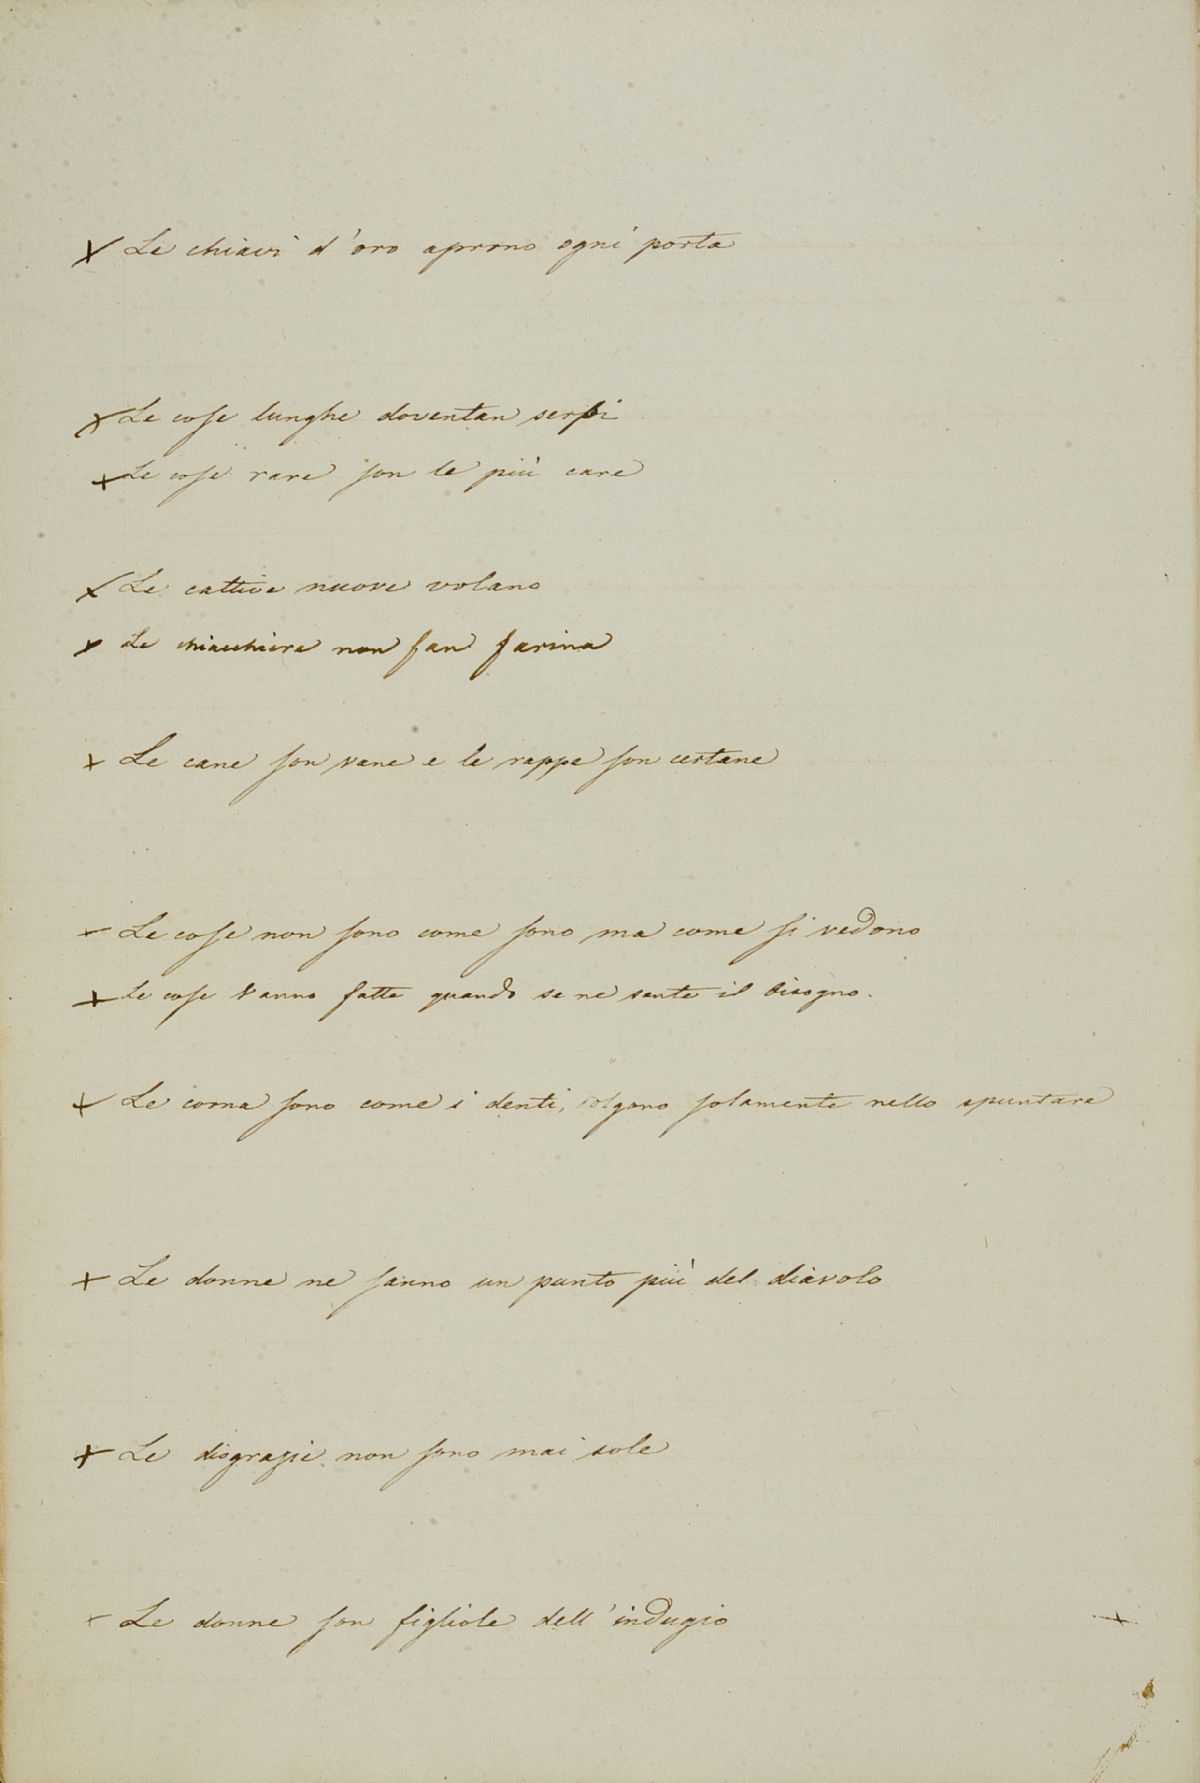 Le chiavi d'oro aprono ogni porta
Le cose lunghe doventan serpi
Le cose rare son le più care
Le cattive nuove volano
Le chiacchiere non fan farina
Le cane son vane e le rappe son certane
Le cose non sono come sono ma come si vedono
Le cose vanno fatte quando se ne sente il bisogno.
Le corna sono come i denti, dolgono solamente nello spuntare
Le donne ne sanno un punto più del diavolo
Le disgrazie non sono mai sole
Le donne son figliole dell'indugio